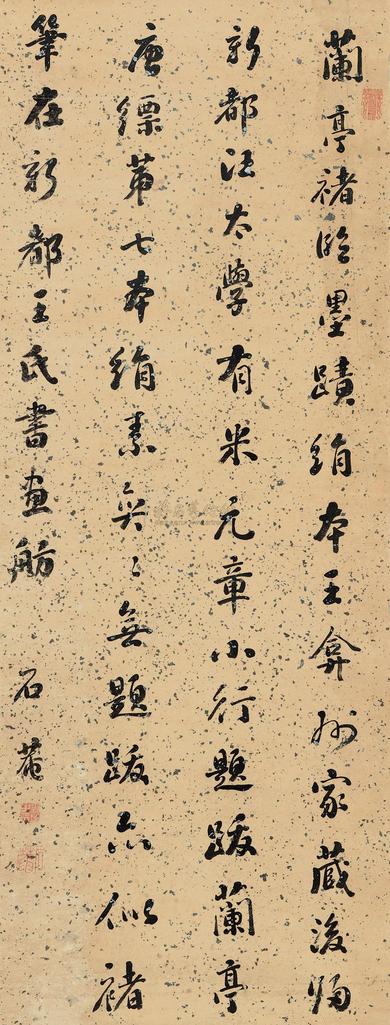 蘭亭褚臨墨蹟絹本王弇州家藏後歸
新都汪太學有米元章小行題跋蘭亭
唐標第七本絹素無題跋亦似褚
筆在新都王氏書畫舫
石菴